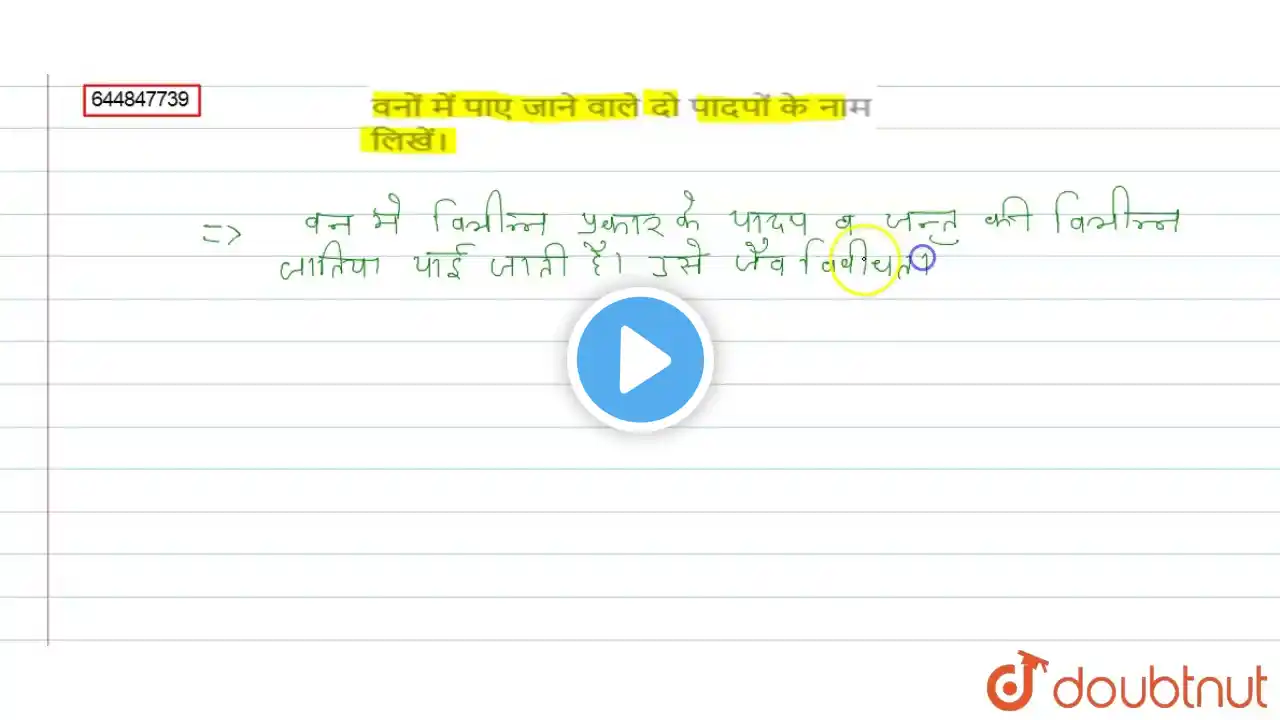 644847739
वनों में पाए जाने वाले दो पादपों के नाम
लिखें।
=> वन मे विभीन्न प्रकार के पादप व जन्तु की विभीन्न
जातिया पाई जाती है। उसे जैव विवीधता
doubtnut